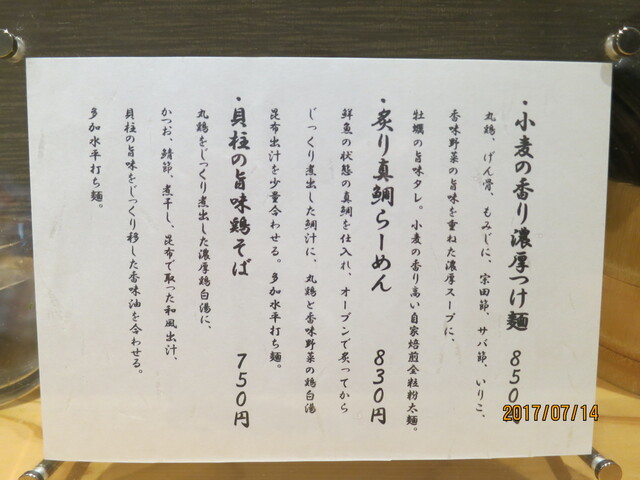 ・小麦の香り濃厚つけ麺　850
丸鶏、げん骨、もみじに、宗田節、サバ節、いりこ、
香味野菜の旨味を重ねた濃厚スープに、
牡蠣の旨味タレ。小麦の香り高い自家焙煎全粒粉太麺。
・炙り真鯛らーめん　830円
鮮魚の状態の真鯛を仕入れ、オーブンで炙ってから
じっくり煮出した鯛汁に、丸鶏と香味野菜の鶏白湯
昆布出汁を少量合わせる。多加水平打ち麺。
・貝柱の旨味鶏そば　750円
丸鶏をじっくり煮出した濃厚鶏白湯に、
かつお、鯖節、煮干し、昆布で取った和風出汁、
貝柱の旨味をじっくり移した香味油を合わせる。
多加水平打ち麺。
2017/07/14